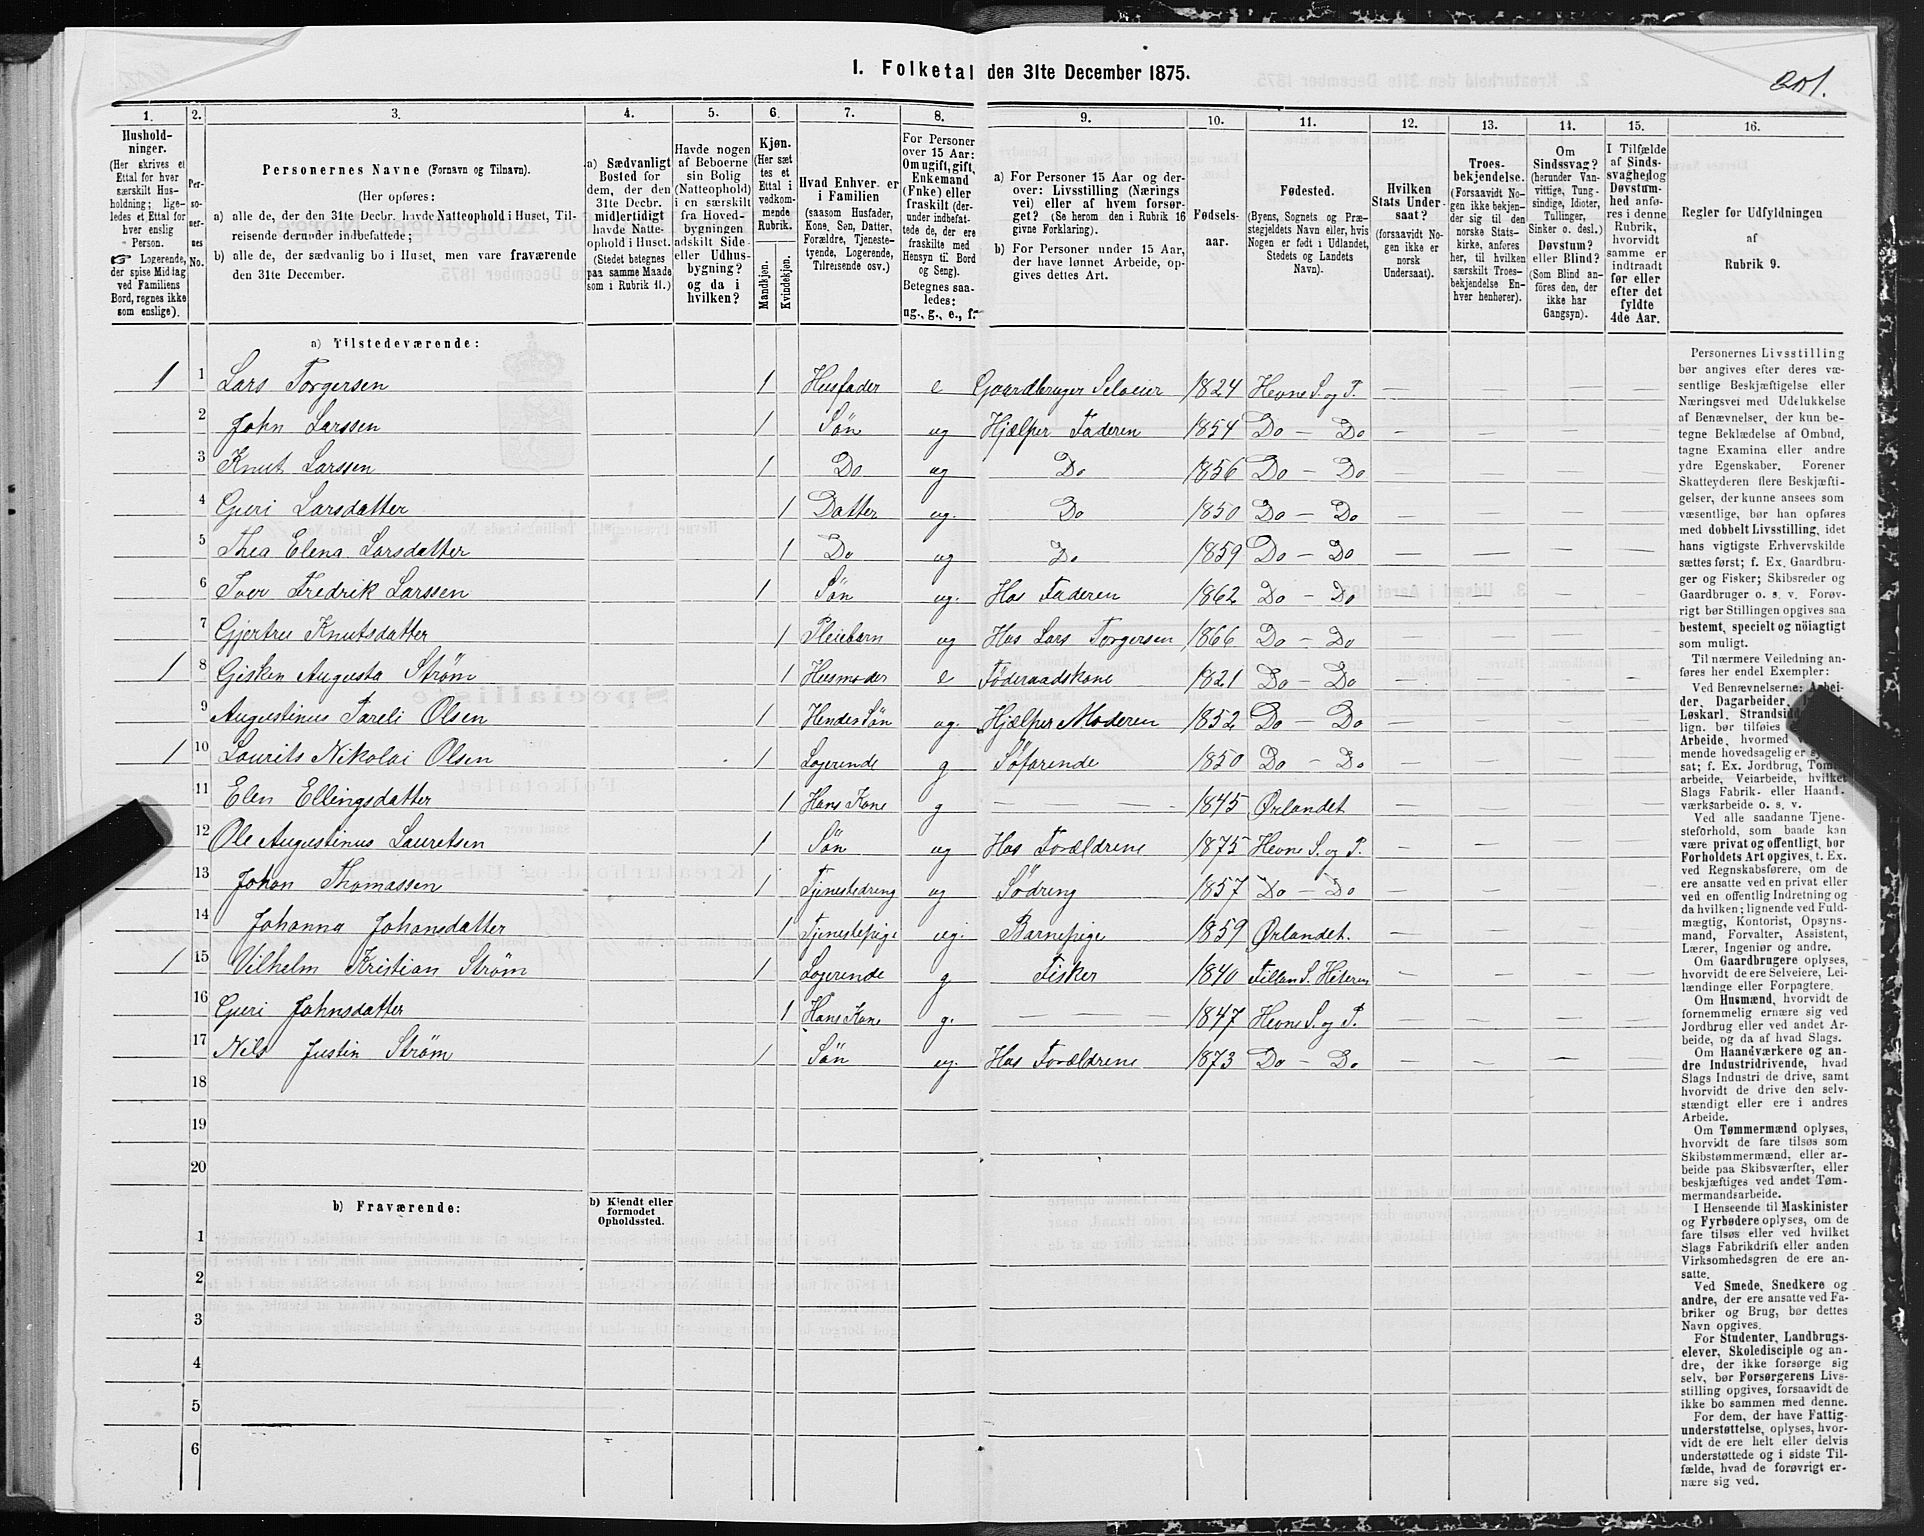 1. Folketal den 31te December 1875.
201.
1. 2. 3. 4. 5. 6. 7. 8. 9. 10. 11. 12. 13. 14. 15. 16.
Hushold-
ninger.
(Her skrives et
Ettal for hver
særskilt Hus-
holdning; lige-
ledes et Ettal for
hver enslig
Person.
☞ Logerende,
der spise Middag
ved Familiens
Bord, regnes ikke
som enslige).
Per-
so-
ner-
nes
No.
Personernes Navne (Fornavn og Tilnavn).
(Her opføres:
a) alle de, der den 31te Decbr. havde Natteophold i Huset, Til-
reisende derunder indbefattede;
b) alle de, der sædvanlig bo i Huset, men vare fraværende
den 31te December.
a) Sædvanligt
Bosted for
dem, der den
31te Decbr.
midlertidigt
havde Natte-
ophold i Huset.
(Stedet betegnes
paa samme Maade
som i Rubrik 11.)
Havde nogen
af Beboerne
sin Bolig
(Natteophold)
i en særskilt
fra Hoved-
bygningen
adskilt Side-
eller Udhus-
bygning?
og da i
hvilken?
Kjøn.
(Her sæt
tes et
Ettal i
vedkom-
mende
Rubrik.
Mandkjøn.
Kvindekjøn.
Hvad Enhver er
i Familien
(saasom Husfader,
Kone, Søn, Datter,
Forældre, Tjeneste-
tyende, Logerende,
Tilreisende osv.)
For Personer
over 15 Aar:
Om ugift, gift,
Enkemand
(Enke) eller
fraskilt (der-
under indbefat-
tede de, der ere
fraskilte med
Hensyn til Bord
og Seng).
Betegnes saa-
ledes:
ug., g., e., f.
a) For Personer 15 Aar og der-
over: Livsstilling (Nærings
vei) eller af hvem forsør-
get? (Se herom den i Rubrik 16
givne Forklaring).
b) For Personer under 15 Aar,
der have lønnet Arbeide, op-
gives dettes Art.
Fødsels-
aar.
Fødested.
(Byens, Sognets og Præ-
stegjeldets Navn eller, hvis
Nogen er født i Udlandet,
Stedets og Landets
Navn).
Hvilken
Stats Under-
saat?
(forsaavidt No-
gen ikke er
norsk
Undersaat).
Troes-
bekjendelse.
(Forsaavidt No-
gen ikke bekjen-
der sig til den
norske Stats-
kirke, anføres
her, til hvilken
særskilt Troes-
bekjendelse En-
hver henhører).
Om
Sindssvag?
(herunder Van-
vittige, Tung-
sindige, Idioter,
Tullinger,
Sinker o. desl.)
Døvstum?
eller Blind?
(Som Blind an-
føres den, der
ikke har
Gangsyn).
I Tilfælde
af Sinds-
svaghed og
Døvstum-
hed anfø-
res i denne
Rubrik,
hvorvidt
samme er
indtraadt
før eller
efter det
fyldte
4de Aar.
Regler for Udfyldningen
af
Rubrik 9.
a) Tilstedeværende:
1 1 Lars Torgersen 1 Husfader e Gaardbruger Selveier 1824 Hevne S. og P. — — — —
2 John Larssen 1 Søn ug Hjælper Faderen 1854 Do — Do — — — —
3 Knut Larssen 1 Do ug Do 1856 Do — Do — — — —
4 Guri Larsdatter 1 Datter ug. Do 1850 Do — Do — — — —
5 Thea Elena Larsdatter 1 Do ug Do 1859 Do — Do — — — —
6 Iver Fredrik Larssen 1 Søn ug. Hos Faderen 1862 Do — Do — — — —
7 Gjertru Knutsdatter 1 Pleiebarn ug Hos Lars Torgersen 1866 Do — Do — — — —
1 8 Gisken Augusta Strøm 1 Husmoder e Föderaadskone 1821 Do — Do — — — —
9 Augustinus Tareli Olsen 1 Hendes Søn ug. Hjælper Moderen 1852 Do — Do — — — —
1 10 Laurits Nikolai Olsen 1 Logerende g Söfarende 1850 Do — Do — — — —
11 Elen Ellingsdatter 1 Hans Kone g — — 1845 Ørlandet — — — —
12 Ole Augustinus Lauretsen 1 Søn ug Hos Forældrene 1875 Hevne S. og P. — — — —
13 Johan Thomassen 1 Tjenestedreng ug Södring 1857 Do — Do — — — —
14 Johanna Johansdatter 1 Tjenestepige ug. Barnepige 1859 Ørlandet. — — — —
1 15 Vilhelm Kristian Strøm 1 Logerende g Fisker 1840 Fillan S. Hiteren — — — —
16 Guri Johnsdatter 1 Hans Kone g. — — 1847 Hevne S. og P. — — — —
17 Nils Justin Strøm 1 Søn ug. Hos Forældrene 1873 Do — Do — — — —
18
19
20
b) Fraværende:
b) Kjendt eller
formodet
Opholdssted.
1
2
3
4
5
6
Personernes Livsstilling
bør angives efter deres væ-
sentlige Beskjæftigelse eller
Næringsvei med Udelukkelse
af Benævnelser, der kun be-
tegne Beklædelse af Ombud,
tagne Examina eller andre
ydre Egenskaber. Forener
Skatteyderen flere Beskjæfti-
gelser, der kunne ansees som
væsentlige, bør han opføres
med dobbelt Livsstilling, idet
hans vigtigste Erhvervskilde
sættes først; f. Ex. Gaardbru-
ger og Fisker; Skibsreder og
Gaardbruger o. s. v. Forøv-
rigt bør Stillingen opgives saa
bestemt, specielt og nöiagtigt
som muligt.
Til nærmere Veiledning an-
føres her endel Exempler:
Ved Benævnelserne: Arbei-
der, Dagarbeider,
Løskarl, Strandsidder
lign. bør tilføies
Arbeide, hvormed
mende hovedsagelig er
sat; f. Ex. Jordbrug, Tom
arbeide, Veiarbeide, hvilket
Slags Fabrik- eller Haand-
værksarbeide o. s. v.
Ved alle saadanne Tjene-
steforhold, som baade kan
være privat og offentligt, bør
Forholdets Art opgives, t. Ex.
ved Regnskabsførere, om de
ere ansatte ved en privat eller
ved en offentlig Indretning og
da hvilken; lignende ved Fuld-
mægtig, Kontorist, Opsyns-
mand, Forvalter, Assistent,
Lærer, Ingeniør og andre.
Om Gaardbrugere oplyses,
hvorvidt de ere Selveiere, Lei-
lændinge eller Forpagtere.
Om Husmænd, hvorvidt de
fornemmelig ernære sig ved
Jordbrug eller ved andet Ar-
beide, og da af hvad Slags.
Om Haandværkere og an-
dre Industridrivende, hvad
Slags Industri de drive, samt
hvorvidt de drive den selv-
stændigt eller ere i andres
Arbeide.
Om Tømmermænd oplyses,
hvorvidt de fare tilsøs som
Skibstømmermænd, eller ar-
beide paa Skibsværfter, eller
beskjæftiges ved andet Tøm-
mermandsarbeide.
I Henseende til Maskinister
og Fyrbødere oplyses, om de
fare tilsøs eller ved hvilket
Slags Fabrikdrift eller anden
Virksomhedsgren de ere an-
satte.
Ved Smede, Snedkere og
andre, der ere ansatte ved Fa-
briker og Brug, bør dettes
Navn opgives.
For Studenter, Landbrugs-
elever, Skoledisciple og an-
dre, der ikke forsørge sig
selv, bør Forsørgerens Livs-
stilling opgives, forsaavidt de
ikke bo sammen med denne.
For dem, der have Fattig-
understøttelse, oplyses, hvor-
vidt de ere helt eller delvis
understøttede og i sidste Til-
fælde, hvad de forøvrigt er-
nære sig ved.